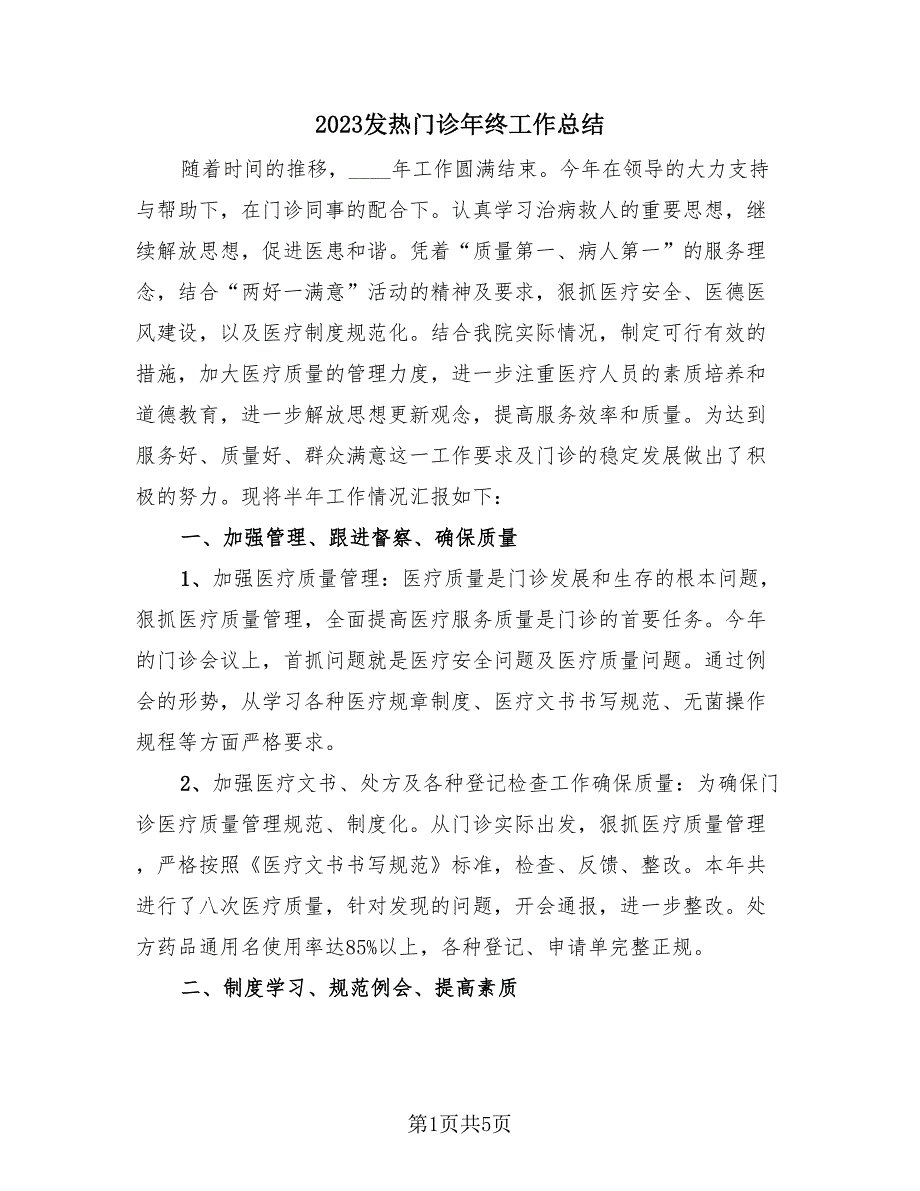 2023发热门诊年终工作总结
随着时间的推移，____年工作圆满结束。今年在领导的大力支持
与帮助下，在门诊同事的配合下。认真学习治病救人的重要思想，继
续解放思想，促进医患和谐。凭着“质量第一、病人第一”的服务理
念，结合“两好一满意”活动的精神及要求，狠抓医疗安全、医德医
风建设，以及医疗制度规范化。结合我院实际情况，制定可行有效的
措施，加大医疗质量的管理力度，进一步注重医疗人员的素质培养和
道德教育，进一步解放思想更新观念，提高服务效率和质量。为达到
服务好、质量好、群众满意这一工作要求及门诊的稳定发展做出了积
极的努力。现将半年工作情况汇报如下：
一、加强管理、跟进督察、确保质量
1、加强医疗质量管理：医疗质量是门诊发展和生存的根本问题，
狠抓医疗质量管理，全面提高医疗服务质量是门诊的首要任务。今年
的门诊会议上，首抓问题就是医疗安全问题及医疗质量问题。通过例
会的形势，从学习各种医疗规章制度、医疗文书书写规范、无菌操作
规程等方面严格要求。
2、加强医疗文书、处方及各种登记检查工作确保质量：为确保门
诊医疗质量管理规范、制度化。从门诊实际出发，狠抓医疗质量管理
，严格按照《医疗文书书写规范》标准，检查、反馈、整改。本年共
进行了八次医疗质量，针对发现的问题，开会通报，进一步整改。处
方药品通用名使用率达85%以上，各种登记、申请单完整正规。
二、制度学习、规范例会、提高素质
第1页共5页